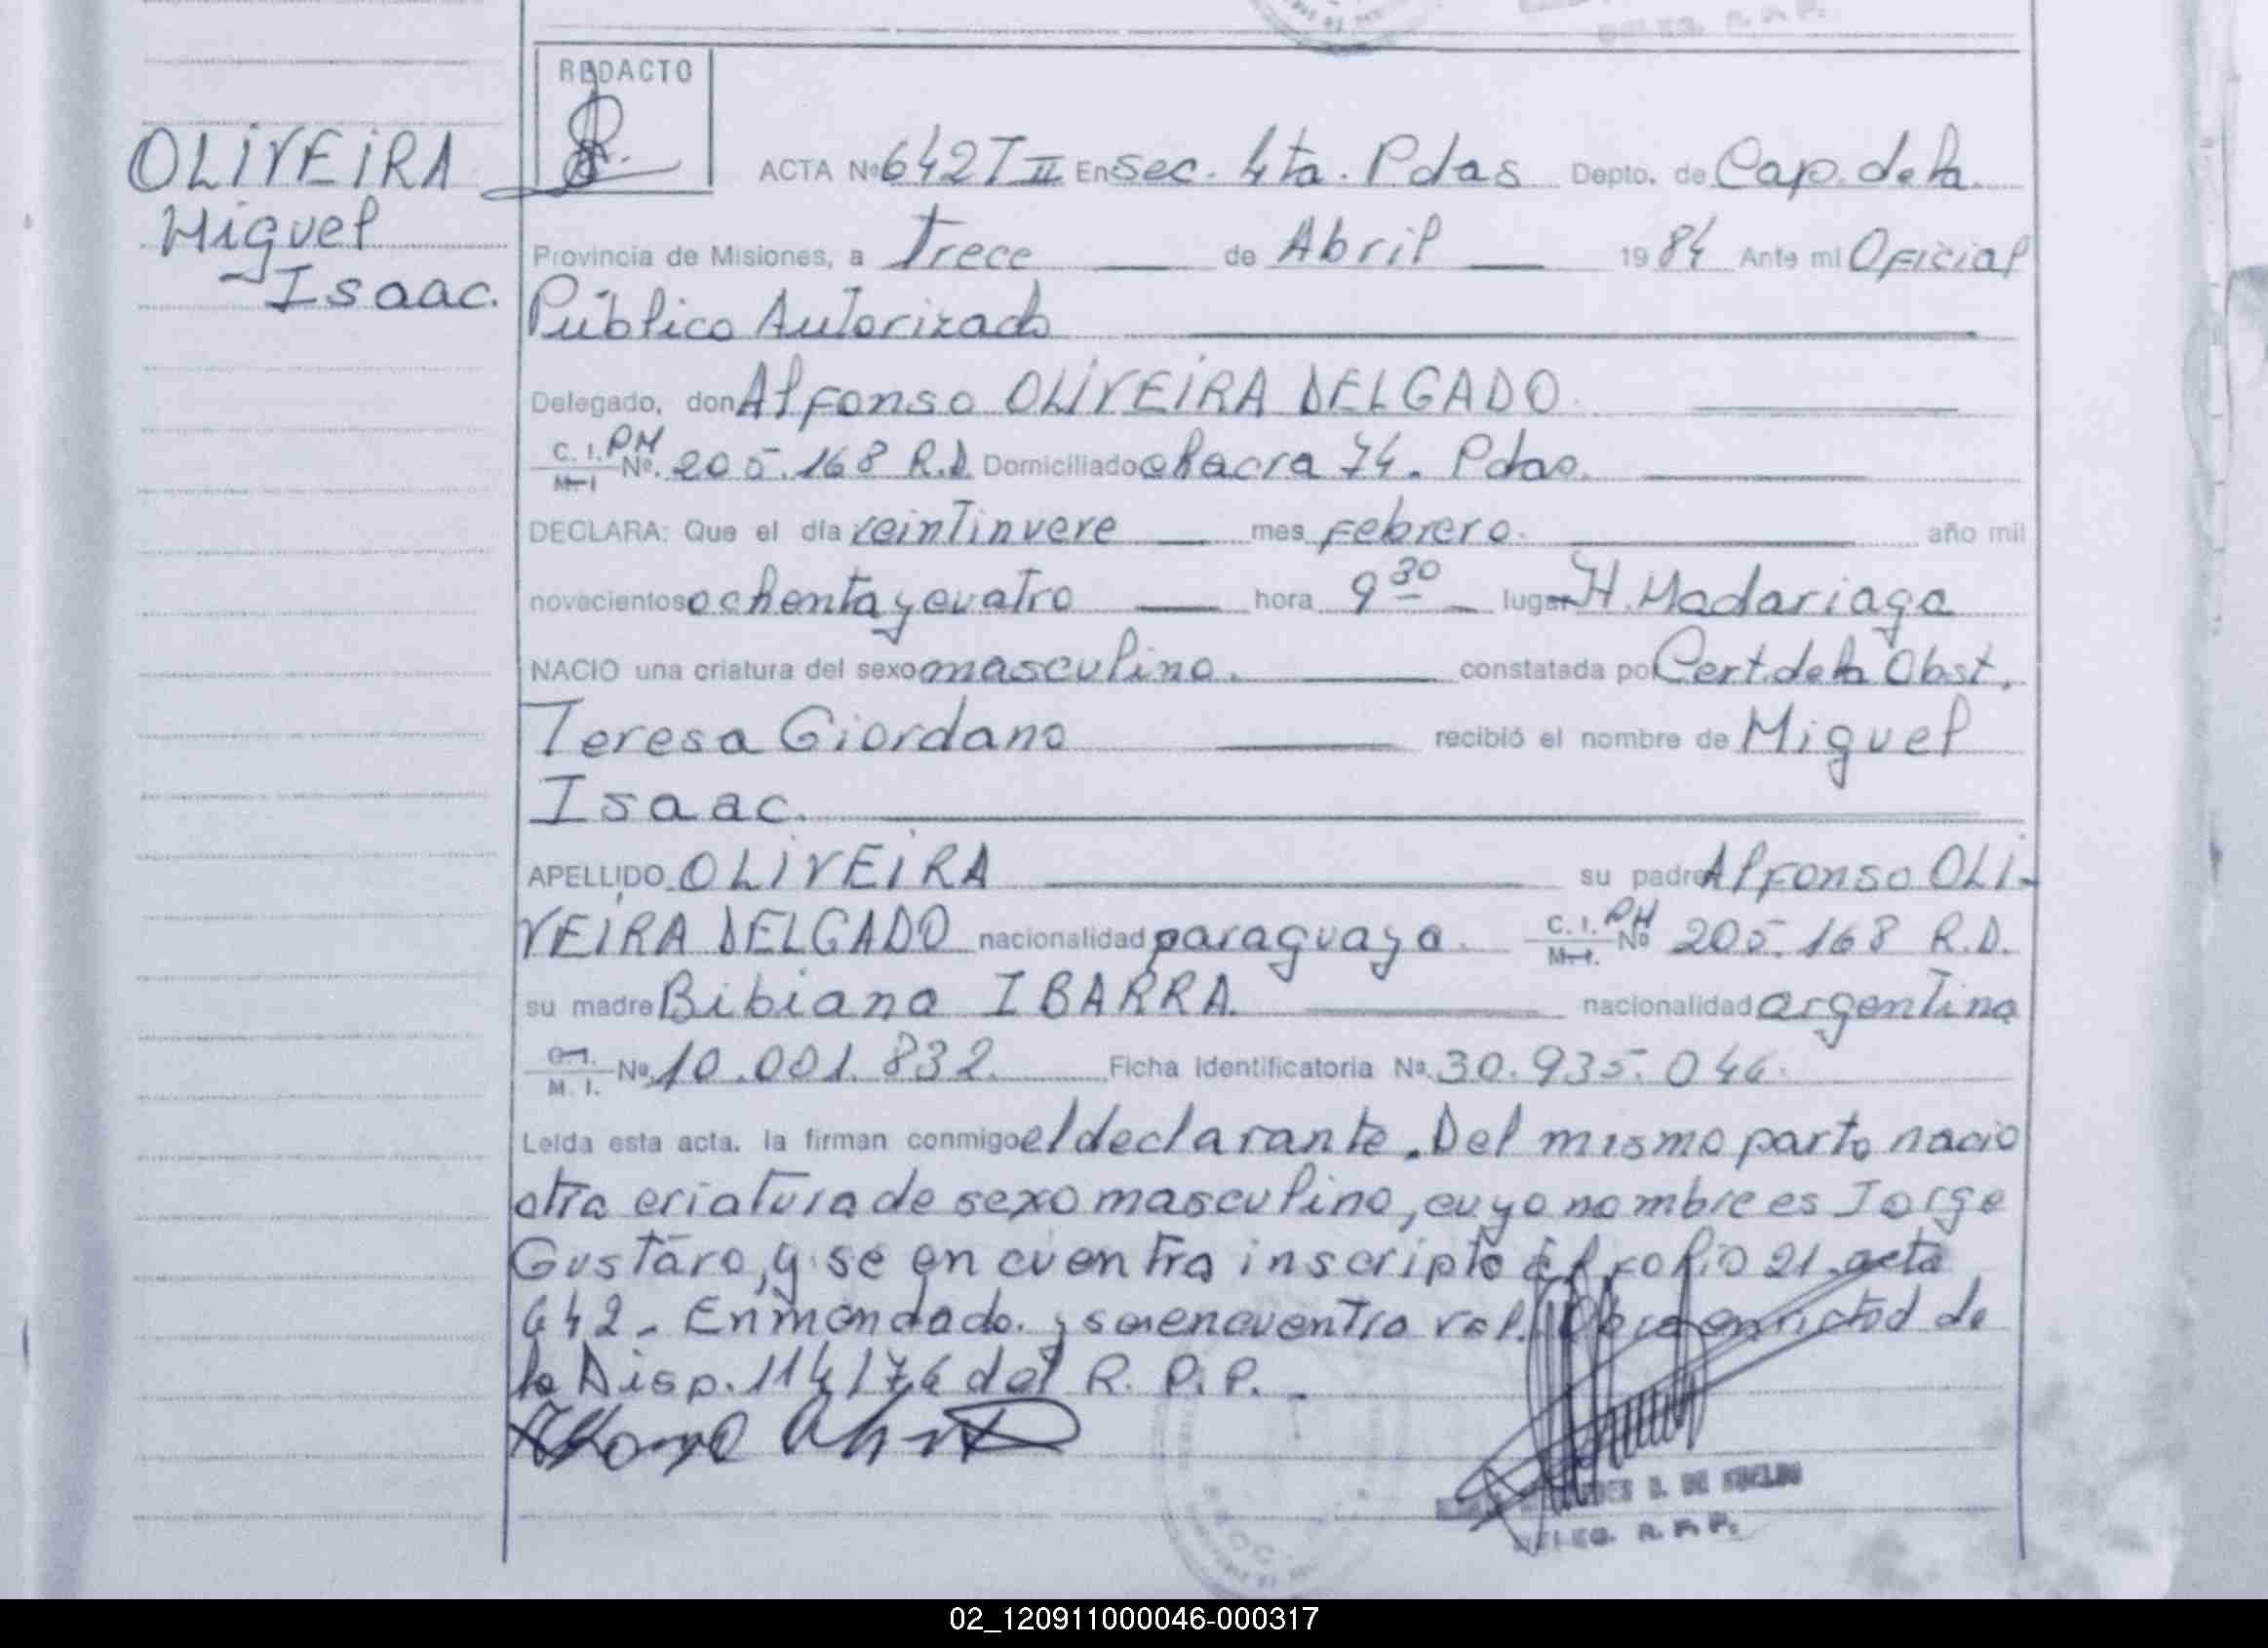 REDACTO
OLIVEIRA
Miguel
Isaac.
ACTA Nº 642 T II En Sec. 4ta. Pdas Depto. de Cap. de la
Provincia de Misiones, a Trece de Abril 1984 Ante mi Oficial
Público Autorizado
Delegado, don Alfonso OLIVEIRA DELGADO
C. I. PM
M. I Nº. 205.168 R.D Domiciliado chacra 74. Pdas.
DECLARA: Que el día veintinueve mes Febrero. año mil
novecientos ochenta y cuatro hora 9 30 lugar H. Madariaga
NACIO una criatura del sexo masculino. constatada por Cert. de la Obst.
Teresa Giordano recibió el nombre de Miguel
Isaac.
APELLIDO OLIVEIRA su padre Alfonso OLI-
VEIRA DELGADO nacionalidad paraguaya. C. I. PM
M. I. Nº 205.168 R.D.
su madre Bibiana IBARRA. nacionalidad argentina
C. I.
M. I. Nº 10.001.832. Ficha Identificatoria Nº 30.935.046.
Leída esta acta, la firman conmigo el declarante. Del mismo parto nacio
otra criatura de sexo masculino, cuyo nombre es Jorge
Gustavo, y se encuentra inscripto al folio 21. acta
642 - Enmendado. y se encuentra val. en virtud de
la Disp. 114/76 del R. P. P. -
D. DE
DELEG. R. P. P.
02_120911000046-000317